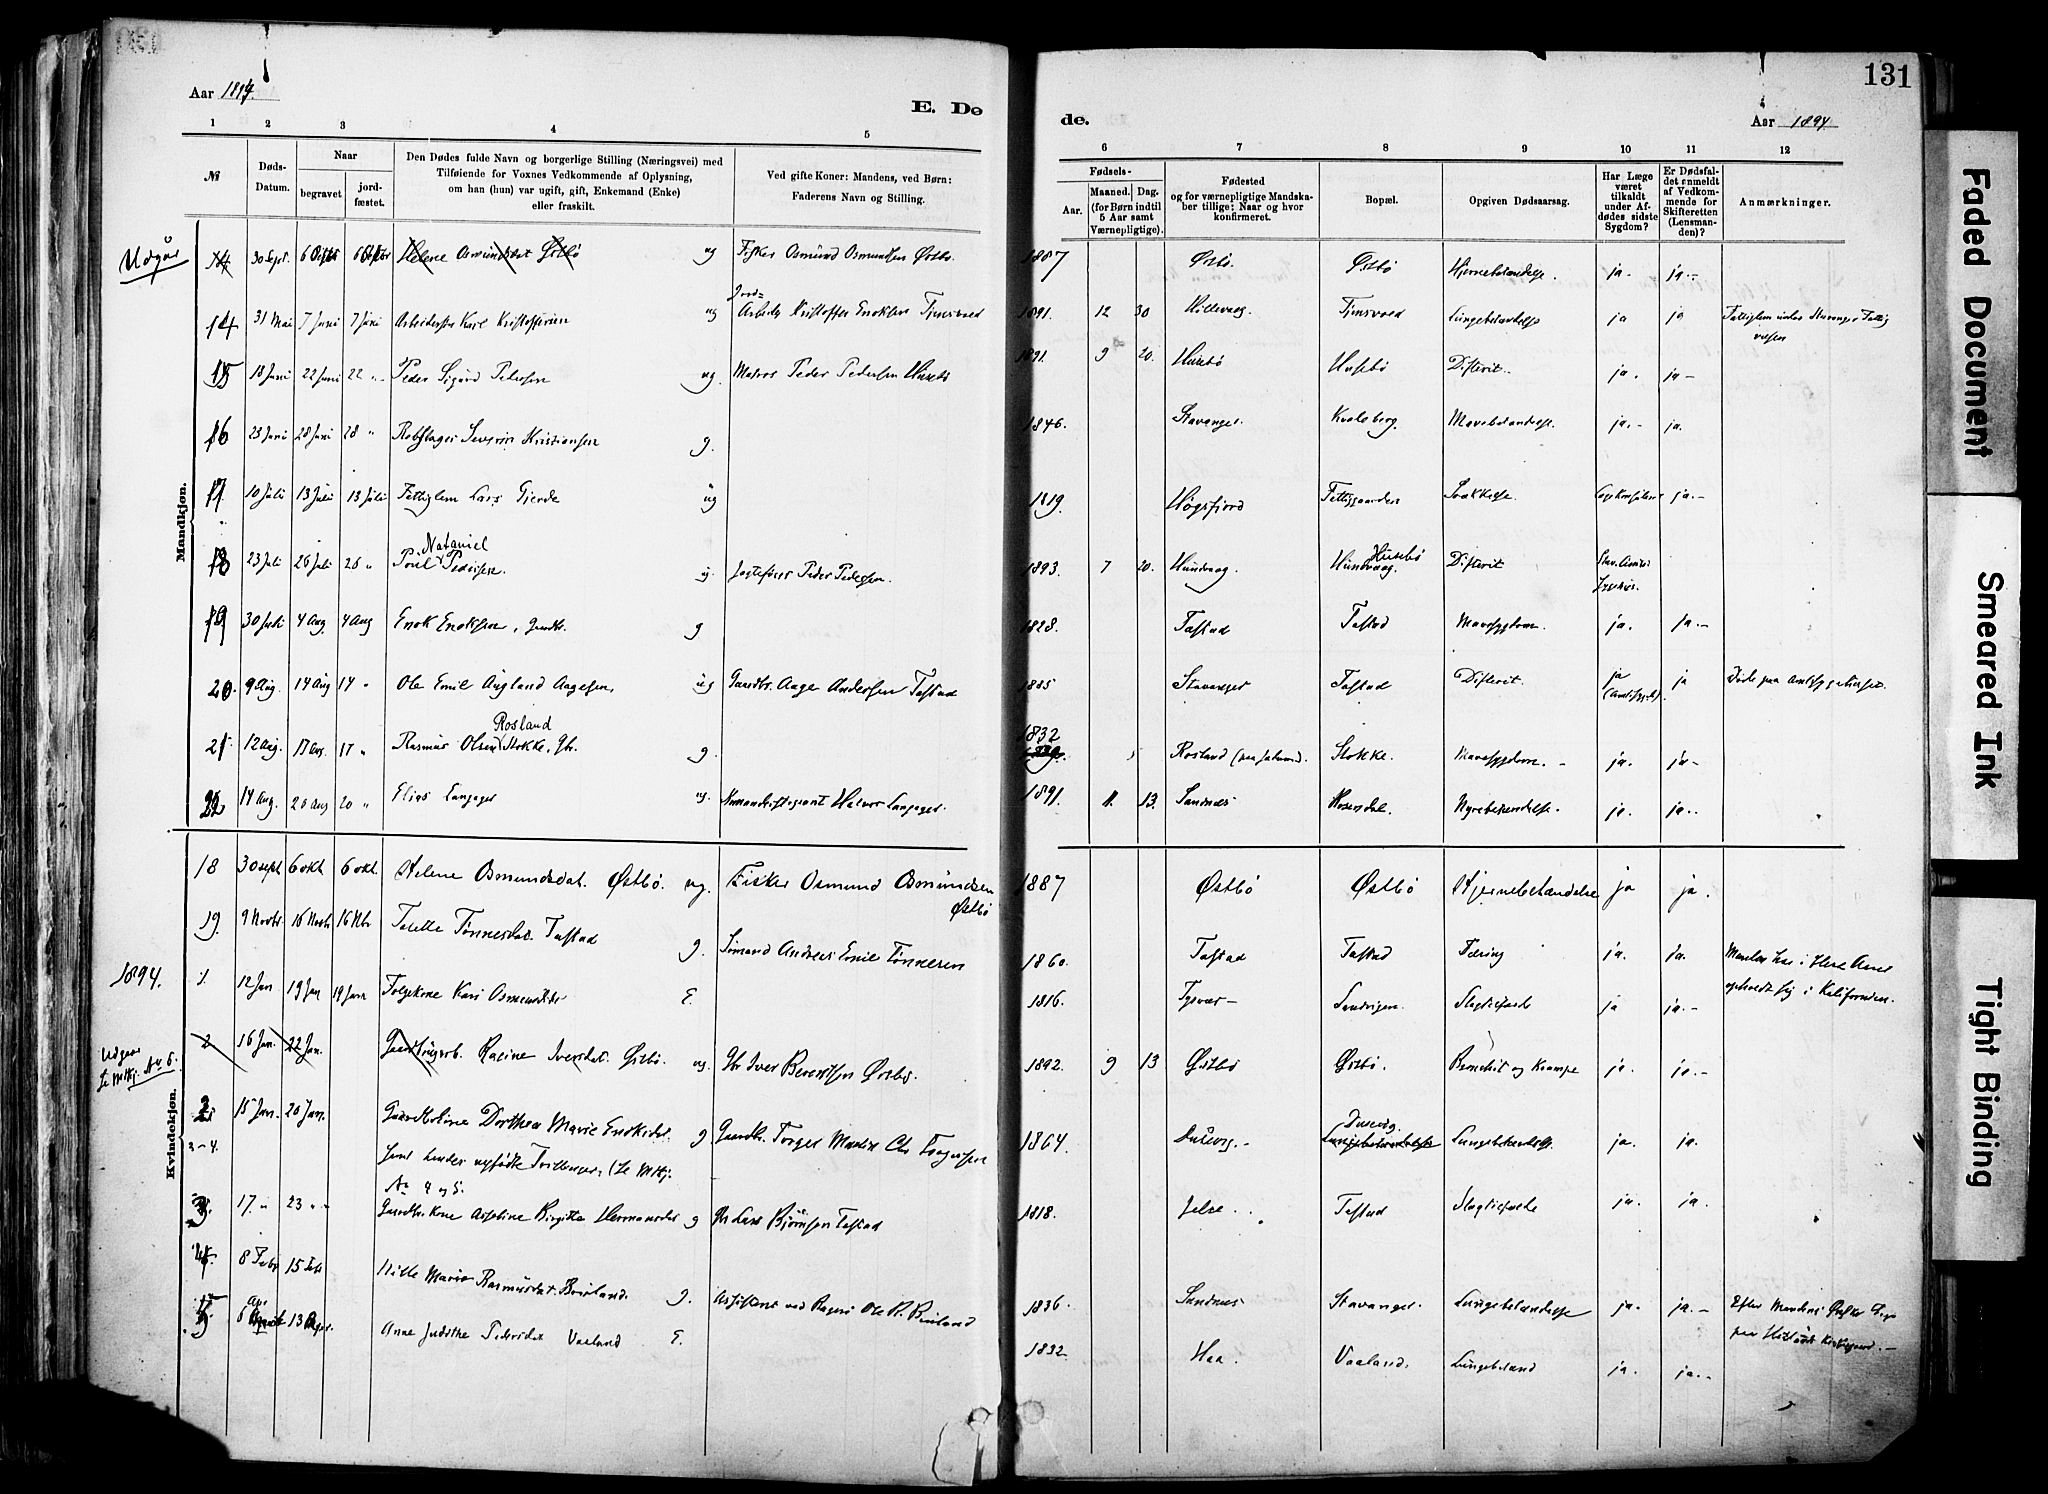 131
Aar 1894.
E. Døde.
Aar 1894
1 2 3 4 5 6 7 8 9 10 11 12
№
Døds-Datum.
Naar
begravet
jord-fæstet.
Den Dødes fulde Navn og borgerlige Stilling (Næringsvei) med
Tilføiende for Voxnes Vedkommende af Oplysning,
om han (hun) var ugift, gift, Enkemand (Enke)
eller fraskilt.
Ved gifte Koner: Mandens, ved Børn:
Faderens Navn og Stilling.
Fødsels-
Aar.
Maaned. Dag.
(for Børn indtil
5 Aar samt
Værnepligtige).
Fødested
og for værnepligtige Mandska-
ber tillige: Naar og hvor
konfirmeret.
Bopæl.
Opgiven Dødsaarsag.
Har Læge
været
tilkaldt
under Af-
dødes sidste
Sygdom?
Er Dødsfal-
det anmeldt
af Vedkom-
mende for
Skifteretten
(Lensman-
den)?
Anmærkninger.
Mandkjøn.
Udgår 14 30 Sept. 6 Oktbr 6 Oktbr Helene Osmundsdat Østbø ug Fisker Osmund Osmundsen Østbø. 1887 Østbø. Østbø Hjernebetændelse. ja. ja.
14 31 Mai 7 Juni 7 Juni Arbeider Karl Kristoffersen ug Arbeider Kristoffer Enoksen Tjensvold 1891. 12 30 Hillevaag. Tjensvold Lungebetændelse ja ja Fattiglem under Stavanger Fattig
væsen
15 18 Juni 22 Juni 22 " Peder Sigurd Pedersen ug. Matros Peder Pedersen Husebø 1891. 9 20. Husebø Husebø Difterit. ja. ja
16 23 Juni 28 Juni 28 " Rebslager Severin Kristiansen g. 1846. Stavanger Kvaleberg. Mavebetændelse. ja. ja.
17 10 Juli 13 Juli 13 Juli Fattiglem Lars Gjerde ug 1819. Høgsfjord Fattiggaarden Svækkelse. ja.
Nataniel
18 23 Juli 26 Juli 26 " Poul Pedersen ug. Peder Pedersen. 1893. 7 20. Hundvaag. Hundvaag. Husebø Difterit
19 30 Juli 4 Aug 4 Aug Enok Enoksen, Gaardbr. g 1828. Tastad Tastad Mavesygdom. ja. ja.
20. 9 Aug. 14 Aug 14 " Ole Emil Augland Aagesen, ug Gaardbr. Aage Andersen Tastad 1885 Stavanger Tastad Difterit. ja
(Amtssygeh.) ja Døde paa Amtssygehuset.
Rosland
21. 12 Aug. 17 Aug. 17 " Rasmus Olsen Stokke, Gbr. g. 1832 Rosland (paa Jæderen). Stokke. Mavesygdom. ja. ja
22 14 Aug. 20 Aug 20 " Elias Langager ug. Halvor Langager. 1891. 11. 13. Sandnes Rosendal. Nyrebetændelse. ja. ja.
Kvindekjøn.
18 30 sept 6 okt. 6 okt. Helene Osmundsdat. Østbø. ug. Fisker Osmund Osmundsen
Østbø 1887 Østbø Østbø Hjernebetændelse ja ja.
19. 9 Novbr. 16 Novbr 16 Nbr Talette Tønnesdat. Tastad g. Sømand Andreas Emil Tønnesen 1860. Tastad Tastad Tæring ja. ja. Manden har i flere Aar
opholdt sig i Kalifornien.
1894. 1. 12 Jan 19 Jan 19 Jan Kari Osmundsdtr E. 1816. Tysvær Sandvigen. Slagtilfælde ja ja.
Udgaar
Se Mkj. No 6. 2 16 Jan. 22 Jan. Racine Iversdat. Østbø. ug. Gbr Iver Berentsen Østbø. 1892. 9 13 Østbø Østbø. Bronchit og Krampe ja. ja.
2 15 Jan. 20 Jan. Dorthea Marie Enoksdat. g Gaardbr. Torger Martin Chr. Torgersen 1864. Dusevig. Dusevig Lungebetændelse Lungebetændelse ja. ja.
3-4. samt hendes nyfødte Tvillinger. (Se Mkj.
No 4 og 5.
3. 17. " 23 " Gaardbr. Kone Asseline Birgitte Hermansdat g Gbr Lars Bjørnsen Tastad 1818. Jelse. Tastad Slagtilfælde ja. ja.
4 8 Febr 15 Febr Mille Marie Rasmusdat. Bruland. g. Ole R. Bruland 1836. Sandnes Stavanger. Lungebetændelse ja. ja.
5 6 Apr 13 Apr. Anne Judithe Pedersdat Vaaland E. 1832. Haa. Vaaland. Lungebetænd ja. ja.
Faded Document
Smeared Ink
Tight Binding